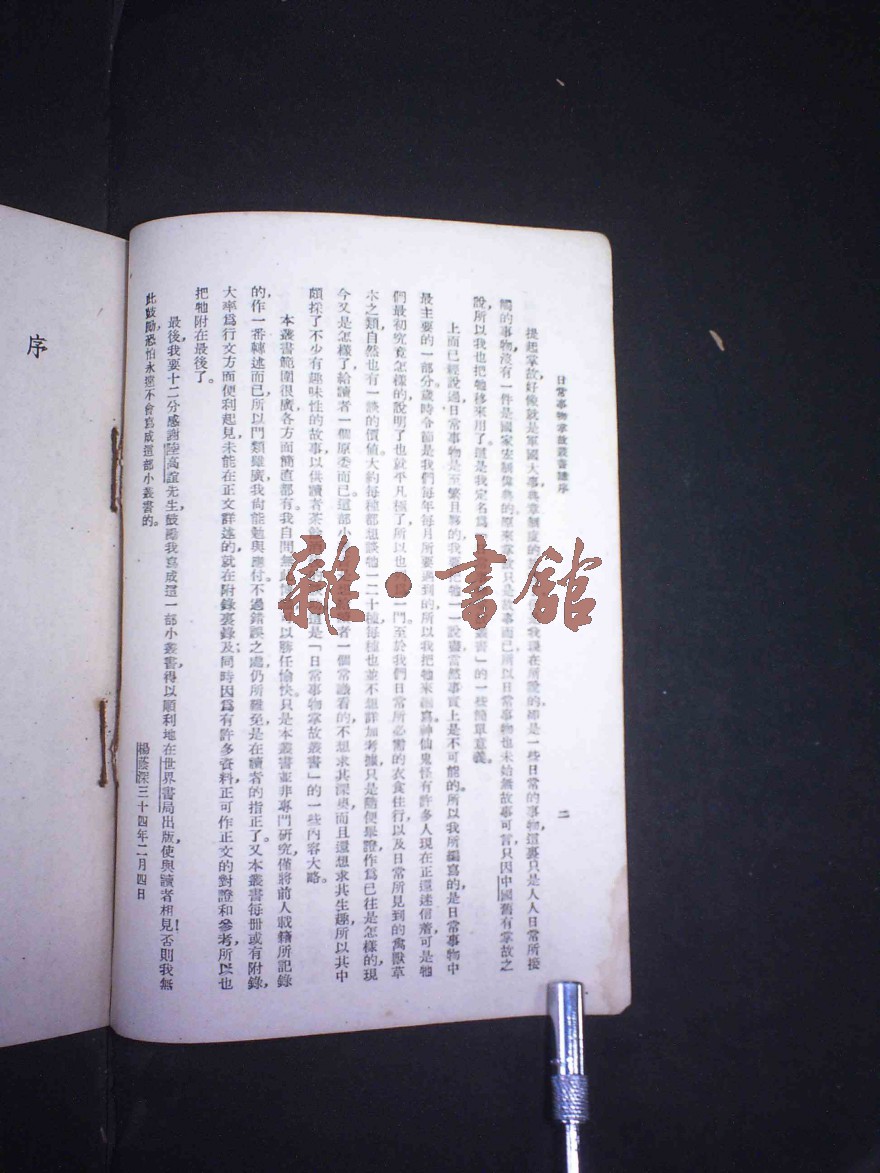 日常事物掌故叢書總序
二
提起掌故，好像就是軍國大事，典章制度的 我現在所說的卻是一些日常的事物，這裏只是人人日常所接
觸的事物，沒有一件是國家宏制偉典的。原來掌 只是 事而已，所以日常事物也未始無故事可言，只因中國舊有掌故之
說，所以我也把牠移來用了。這是我定名爲 叢書」的一些簡單意義。
上面已經說過，日常事物是至繁且夥的，我要把牠一一說盡，當然事實上是不可能的。所以我所編寫的是日常事物中
最主要的一部分。歲時令節是我們每年每月所要遇到的，所以我把牠來編寫。神仙鬼怪有許多人現在正還迷信着，可是牠
們最初究竟怎樣的，說明了也就平凡極了，所以也 一門。至於我們日常所必需的衣食住行，以及日常所見到的禽獸草
木之類，自然也有一談的價值。大約每種都想談牠一二十種，每種也並不想詳加考據，只是隨便舉證，作爲已往是怎樣的，現
今又是怎樣了，給讀者一個原委而已。這部小 者一個常識看的，不想求其深奧，而且還想求其生趣，所以其中
頗採了不少有趣味性的故事，以供讀者茶餘 這是「日常事物掌故叢書」的一些內容大略。
本叢書範圍很廣，各方面簡直都有，我自問無 可以勝任愉快。只是本叢書並非專門研究，僅將前人載籍所記錄
的，作一番轉述而已，所以門類雖廣，我尚能勉與應付。不過錯誤之處仍所難免，是在讀者的指正了。又本叢書每冊或有附錄，
大率爲行文方面便利起見，未能在正文詳述的，就在附錄裏錄及；同時因爲有許多資料，正可作正文的對證和參考，所以也
把牠附在最後了。
最後，我要十二分感謝陸高誼先生，鼓勵我寫成這一部小叢書，得以順利地在世界書局出版，使與讀者相見！否則我無
此鼓勵，恐怕永遠不會寫成這部小叢書的。
楊蔭深三十四年二月四日
序
雜·書館